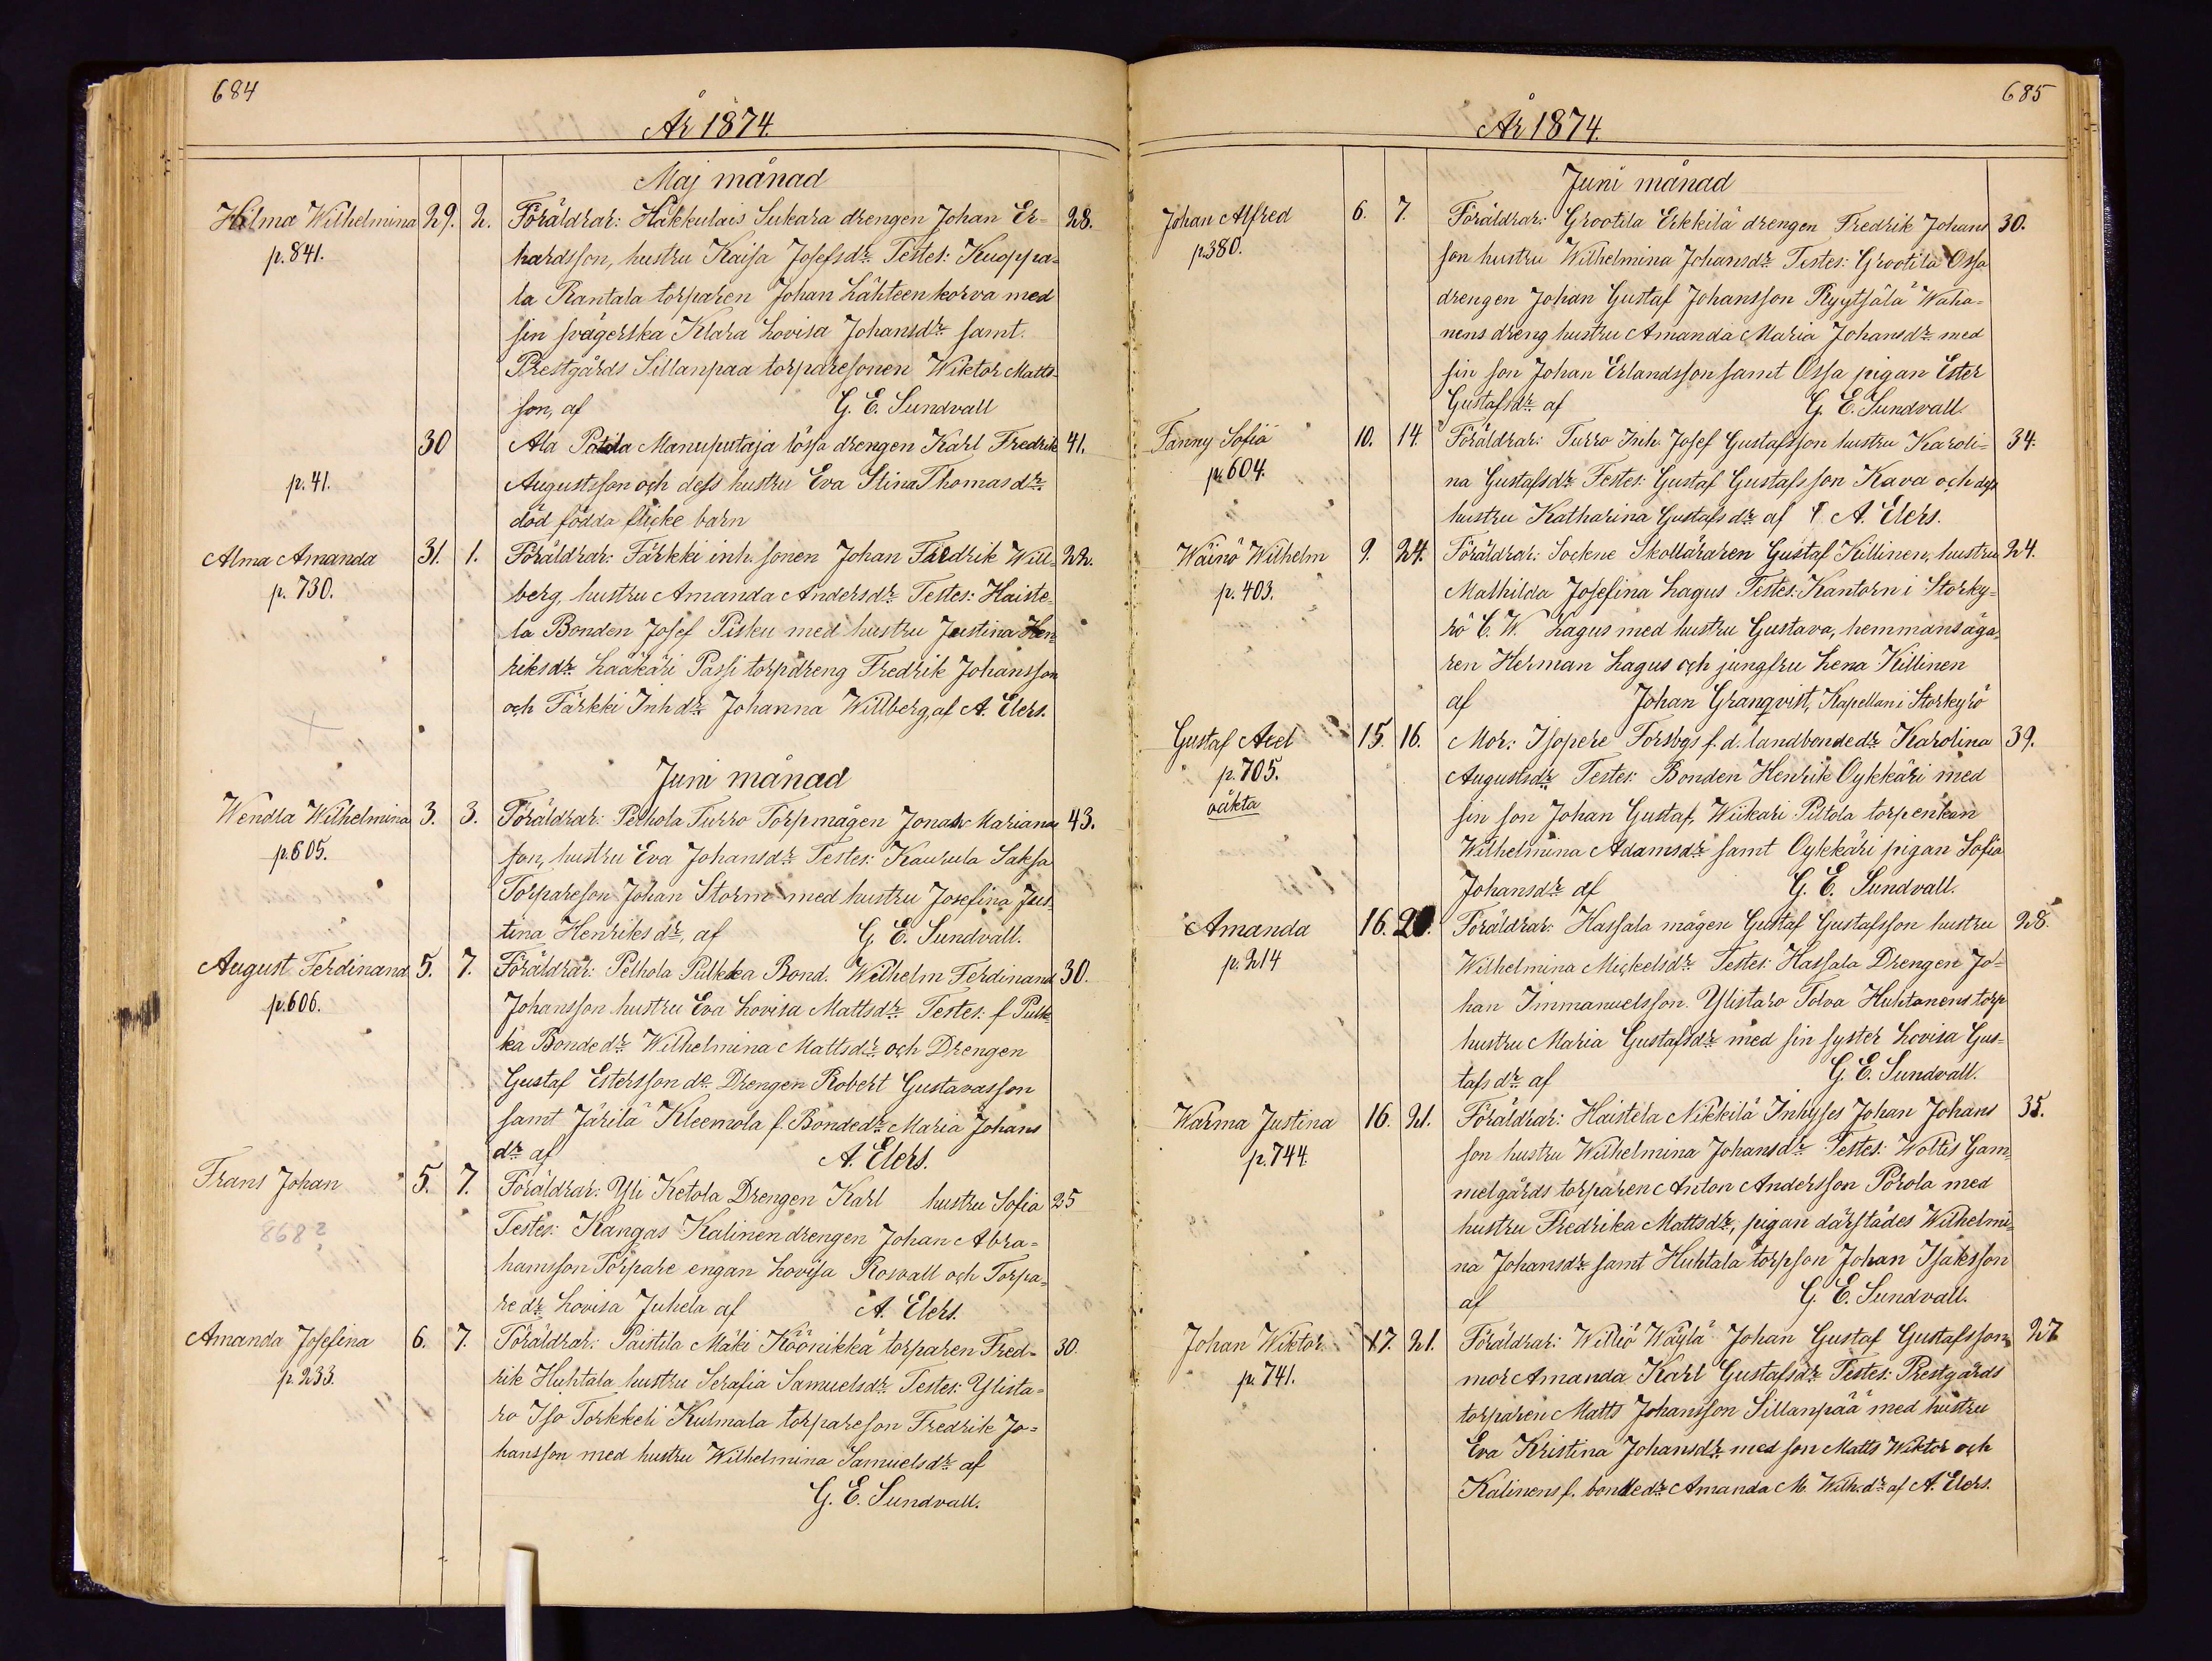 684
År 1874.
Maj månad
Hilma Wilhelmina 29. 2. Föräldrar: Häkkulais Sukara drengen Johan Er= 28.
p. 841. hardsson, hustru Kaisa Josefsdr. Testes: Kuoppa=
la Rantala torparen Johan Lähteenkorva med
sin svägerska Klara Lovisa Johansdr. samt.
Prestgårds Sillanpaa torparesonen Wiktor Matts=
son, af G. E. Sundvall
30 Ala Potila Manuputaja lösa drengen Karl Fredrik 41.
p. 41. Augustsson och dess hustru Eva Stina Thomasdr.
död födda flicke barn
Alma Amanda 31. 1. Föräldrar: Färkki inh. sonen Johan Fredrik Will= 22.
p. 730. berg, hustru Amanda Andersdr. Testes: Haiste=
la Bonden Josef Pisku med hustru Justina Hen
riksdr. Laakäri Passi torpdreng Fredrik Johansson
och Färkki Inhdr. Johanna Willberg, af A. Elers.
Juni månad
Wendla Wilhelmina 3. 3. Föräldrar: Pelhola Turro Torpmågen Jonas Mariana 43.
p. 605. son, hustru Eva Johansdr. Testes: Kaurula Saksa
Torpareson Johan Storm med hustru Josefina Jus=
tina Henriksdr, af G. E. Sundvall.
August Ferdinand 5. 7. Föräldrar: Pelhola Pulkka Bond. Wilhelm Ferdinand 30.
p. 606. Johansson hustru Eva Lovisa Mattsdr. Testes: f. Pulk
ka Bondedr. Wilhelmina Mattsdr. och Drengen
Gustaf Estersson do. Drengen Robert Gustavasson
samt Järilä Kleemola f. Bondedr. Maria Johans
dr. af A. Elers.
Frans Johan 5. 7. Föräldrar: Yli Ketola Drengen Karl hustru Sofia 25
868 2 Testes: Kangas Kalinen drengen Johan Abra=
hamsson Torpare engan Lovisa Rosvall och Torpa=
redr. Lovisa Juhela af A. Elers.
Amanda Josefina 6. 7. Föräldrar: Paistila Mäki Köönikkä torparen Fred= 30.
p. 233. rik Huhtala hustru Serafia Samuelsdr. Testes: Ylista=
ro Iso Torkkeli Kulmala torpareson Fredrik Jo=
hansson med hustru Wilhelmina Samuelsdr. af
G. E. Sundvall.
685
År 1874.
Juni månad
Johan Alfred 6. 7. Föräldrar: Grootila Erkkilä drengen Fredrik Johans 30.
p. 380. son hustru Wilhelmina Johansdr. Testes: Grootila Ossa
drengen Johan Gustaf Johansson Ryytsälä Waha=
nens dreng hustru Amanda Maria Johansdr. med
sin son Johan Erlandsson samt Ossa pigan Ester
Gustafsdr. af G. E. Sundvall.
Fanny Sofia 10. 14. Föräldrar: Turro Inh. Josef Gustafsson hustru Karoli= 34.
p. 604. na Gustafsdr. Testes: Gustaf Gustafsson Kava och dess
hustru Katharina Gustafsdr. af A. Elers.
Wäinö Wilhelm 9. 24. Föräldrar: Sockne Skolläraren Gustaf Killinen, hustru 24.
p. 403. Mathilda Josefina Lagus Testes: Kantorn i Storky=
rö C. W. Lagus med hustru Gustava, hemmansäga=
ren Herman Lagus och jungfru Lena Killinen
af Johan Granqvist, Kapellan i Storkyrö
Gustaf Axel 15. 16. Mor: Isopere Forsbgs f. d. landbondedr. Karolina 39.
p. 705. Augustsdr. Testes: Bonden Henrik Oykkäri med
oäkta sin son Johan Gustaf, Wiikari Piltola torpenkan
Wilhelmina Adamsdr. samt Oykkäri pigan Sofia
Johansdr. af G. E. Sundvall.
Amanda 16. 20. Föräldrar: Hassala mågen Gustaf Gustafsson hustru 28.
p. 214 Wilhelmina Mickelsdr. Testes: Hassala Drengen Jo=
han Immanuelsson. Ylistaro Tolva Huhtanens torp
hustru Maria Gustafsdr. med sin syster Lovisa Gus=
tafsdr. af G. E. Sundvall.
Warma Justina 16. 21. Föräldrar: Haistela Nikkilä Inhyses Johan Johans 35.
p. 744. son hustru Wilhelmina Johansdr. Testes: Woltis Gam=
melgårds torparen Anton Andersson Porola med
hustru Fredrika Mattsdr, pigan därstädes Wilhelmi=
na Johansdr. samt Huhtala torpson Johan Isaksson
af G. E. Sundvall.
Johan Wiktor 17. 21. Föräldrar: Williö Wäylä Johan Gustaf Gustafsson 27
p. 741. mor Amanda Karl Gustafsdr. Testes: Prestgårds
torparen Matts Johansson Sillanpää med hustru
Eva Kristina Johansdr. med son Matts Wiktor och
Kalinens f. bondedr. Amanda M. Wilh.dr. af A. Elers.